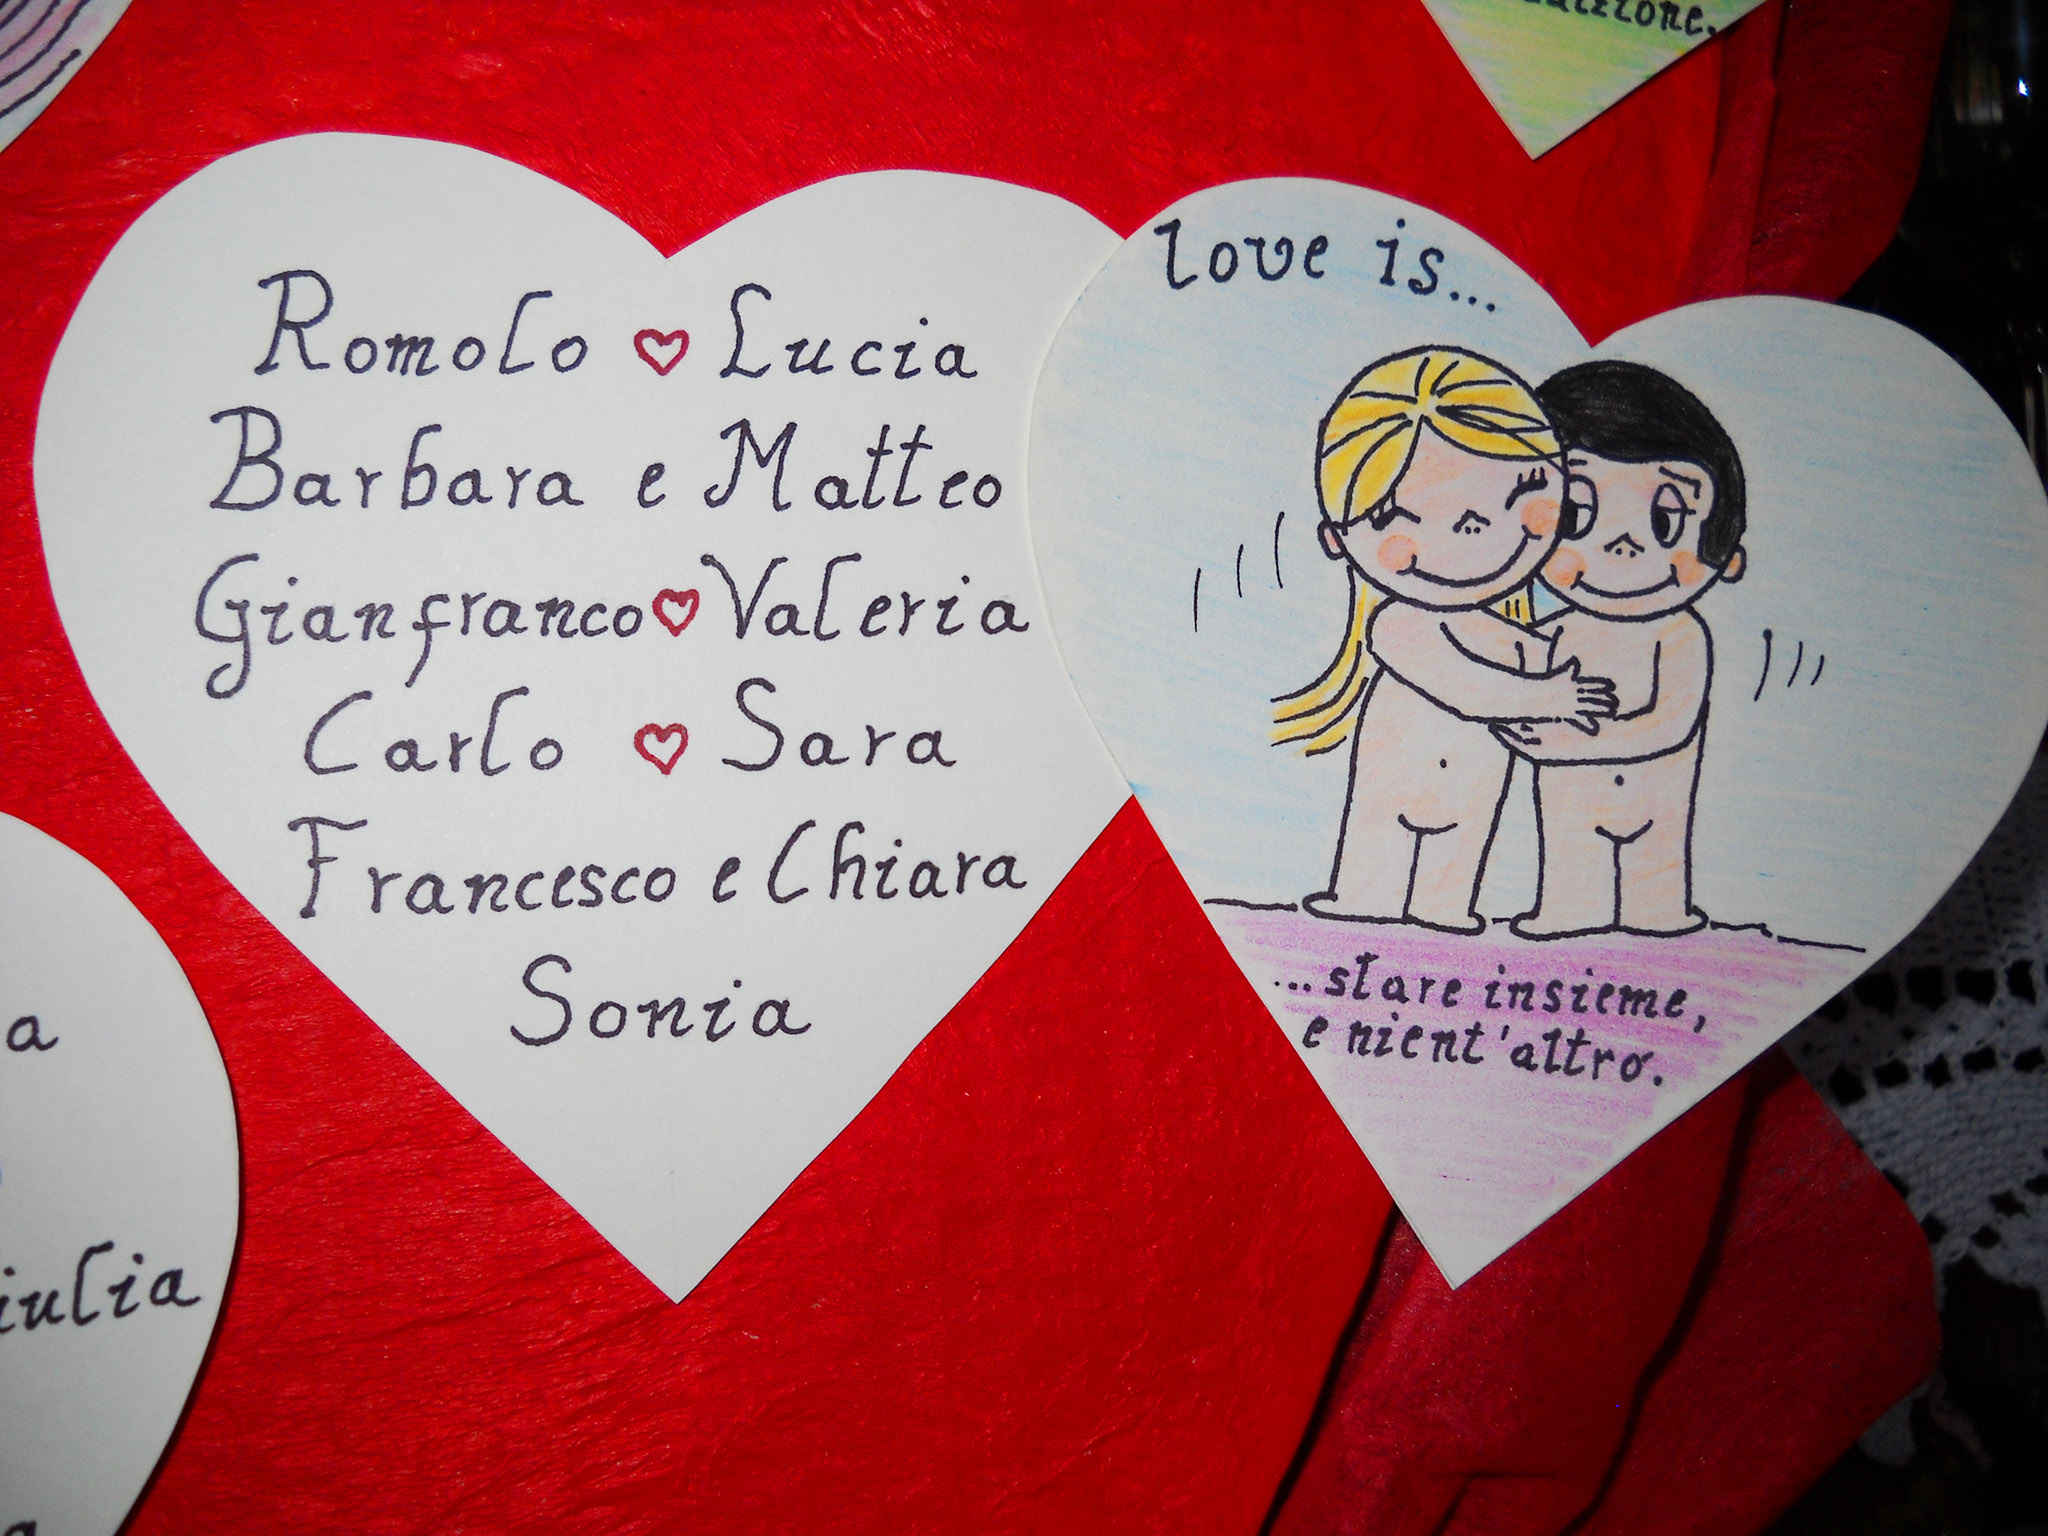 Romolo ♡ Lucia
Barbara e Matteo
Gianfranco ♡ Valeria
Carlo ♡ Sara
Francesco e Chiara
Sonia
love is...
...stare insieme,
e nient'altro.